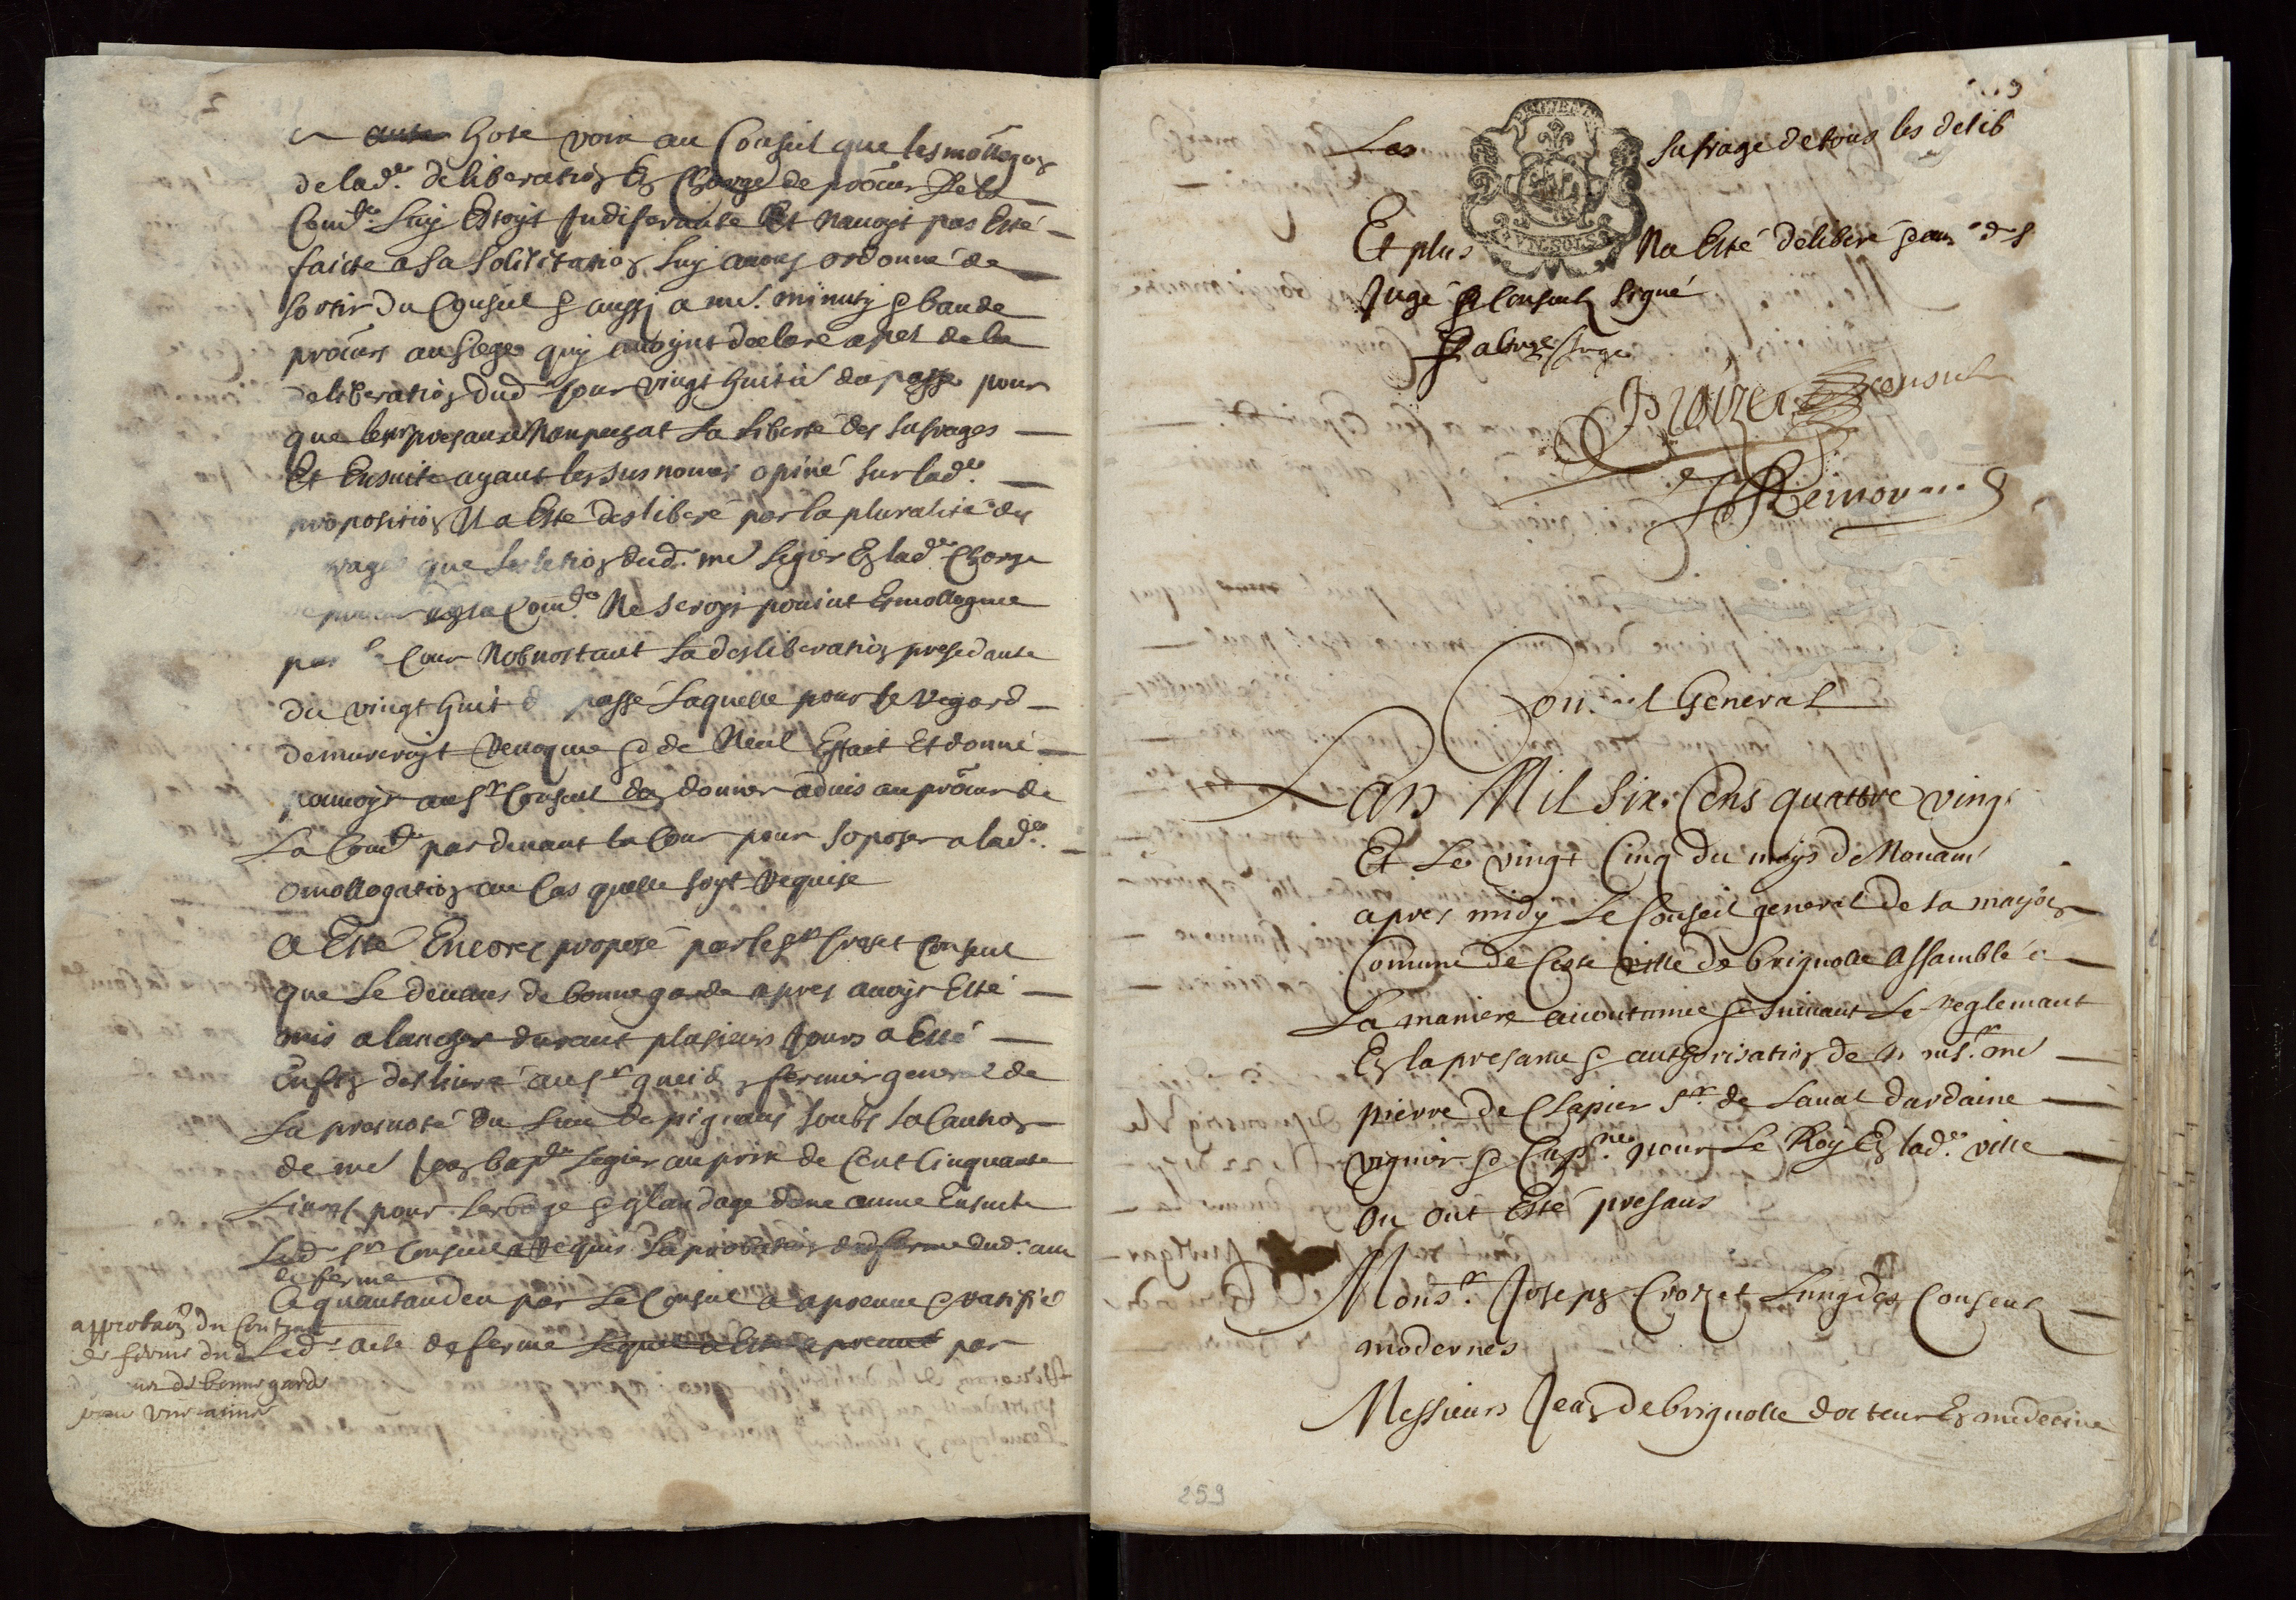 hote voix au Conseil que lesmollogaõn
delad.e deliberation En Charge de procur de la
Com.te Luy Estoyt Indiferante Et navoyt pas Esté
faicte a sa solisitation Luy avons ordonné de
sortir du Conseil & aussy a me. minuty & baude
procurs au siege quy avoynt declaré apel de la
deliberation dud Jour vingt huitie du passé pour
que leur presance Nanpezat La liberté des sufrages
Et Ensuite ayant les sus nomes opiné sur lad.e
proposition Il a Esté desliberé par la pluralité des
que Lelection dud. me Legier En lad.e Charge
de la Com.te Ne seroyt pouint Emollogues
par la Cour Nobnostant La desliberation presedante
du vingt huit passé Laquelle pour se Regard
demureroyt Revoquee & de Neul Effaict Et donné
pouvoyr au Sr Consul den donner advis au procur de
La Com.te pardevant la Cour pour soposer a lad.e
omollogation au Cas quelle soyt Requise
A Esté Encores proposé par le Sr Crozet Consul
que Le devans de bonne garde apres avoyr Esté
mis a lanchere durant plusieurs Jours a Esté
Enfin deslivré au Sr fermier general de
La prevosté du Lieu de pignans soubs la Caution
de me Jean bap.te Legier au prix de Cent Cinquante
Livres pour Lerbage & glandage dune annee Ensuite
Led Sr Consul a Requis Laprobation dud. acte
de ferme
Ce quantandeu par Le Conseil a aprouvé & ratifié
Led. acte de ferme Lequel a Esté aprouvé par
approbaõn du Contract
de ferme dud
de bonne garde
pour une annee
Les sufrage de tous les delib
Et plus Na Esté deliberé &
Juge & Consuls signé
Crozet Consul
Remoran
Conseil General
Lan Mil Six Cens quattre vingt
Et Le vingt Cinq du moys de Novam
apres midy Le Conseil general de la mayson
Comune de Ceste ville de brignolle Assamblé a
La maniere acoutumee & suivant Le reglemant
En la presance & authorisation de mr. me
pierre de Clapier Sr de Lauat dardaine
viguier & Cap.ne pour Le Roy En lad.e ville
ou ont Esté presans
Mons.r Joseph Crozet Lung des Consuls
modernes
Messieurs Jean de brignolle docteur En medecine
259